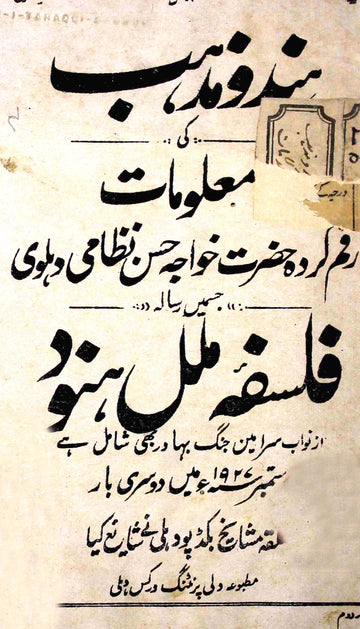 ہندو مذہب
کی
معلومات
رقم کردہ حضرت خواجہ حسن نظامی دہلوی
جسمیں رسالہ
فلسفۂ ملل ہنود
از نواب سر امین جنگ بہادر بھی شامل ہے
ستمبر ۱۹۲۷ء میں دوسری بار
مشایخ بکڈپو دہلی نے شایع کیا
مطبوعہ دلی پرنٹنگ ورکس دہلی